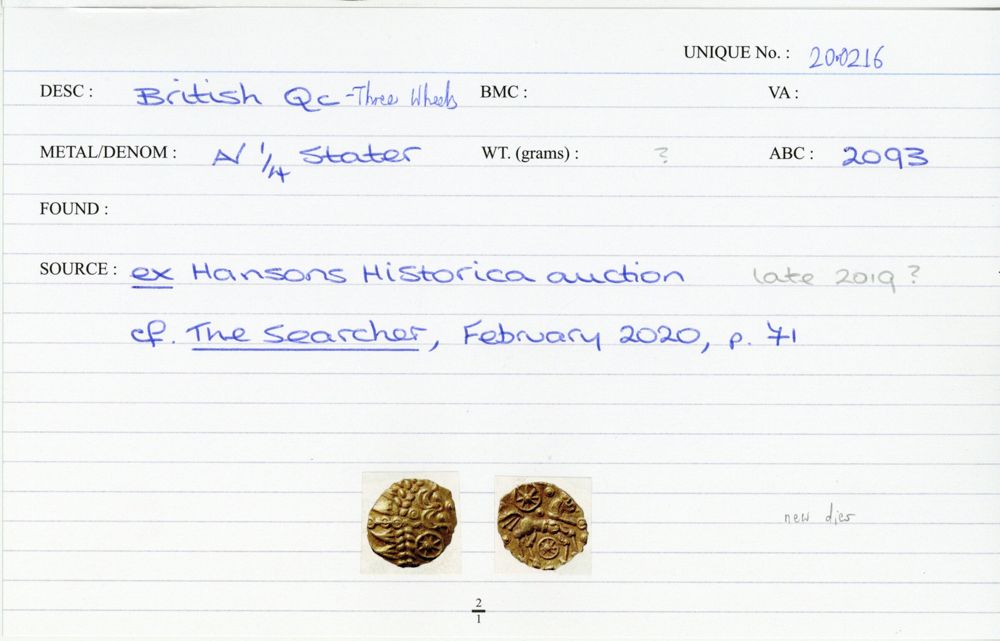 UNIQUE No. : 20.0216
DESC : British Qc - Three Wheels BMC : VA :
METAL/DENOM : AV 1/4 Stater WT. (grams) : ? ABC : 2093
FOUND :
SOURCE : ex Hansons Historica auction late 2019 ?
cf. The Searcher, February 2020, p. 71
new dies
2
1